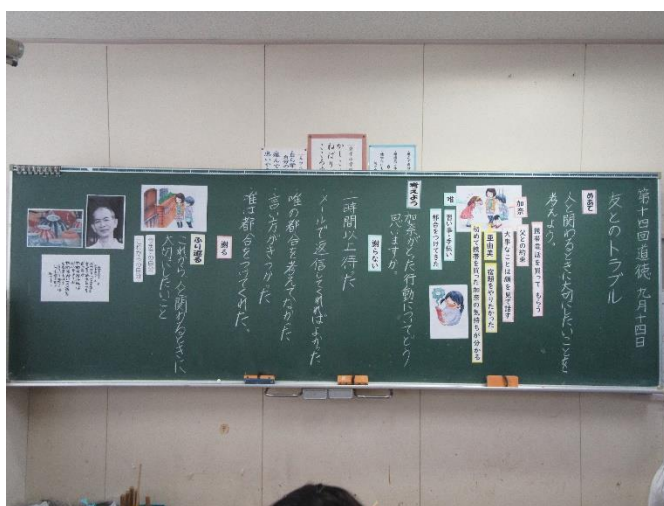 第十四回道徳 九月十四日
友とのトラブル
めあて
人と関わるときに大切にしたいことを
考えよう。
加奈
携帯電話を買ってもらう
父との約束
大事なことは顔を見て話す
亜由美 宿題をやりたかった
初めて携帯を買った加奈の気持ちが分かる
唯
習い事・手伝い
都合をつけてきた
考えよう
加奈がとった行動についてどう
思いますか。
謝らない
一時間以上待った
メールで返信してくれればよかった
唯の都合を考えてなかった
言い方がきつかった
唯は都合をつけてくれた、
謝る
ふり返る
これから人と関わるときに
大切にしたいこと
今までの自分
これからの自分